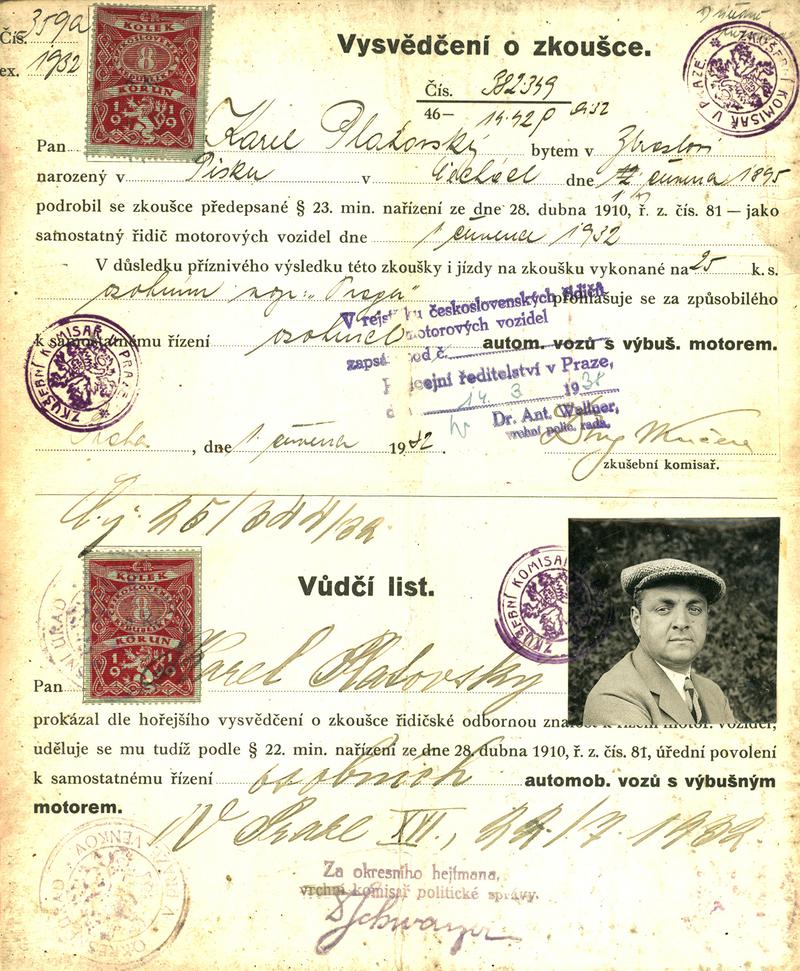 Čís. 359a
ex. 1932
KOLEK
8
KORUN
1919
Vysvědčení o zkoušce.
Čís. 382349
46—
ZKUŠEBNÍ KOMISAŘ V PRAZE
Pan Karel Platovský bytem v Zbraslavi
narozený v Písku v Čechách dne 12 června 1895
podrobil se zkoušce předepsané § 23. min. nařízení ze dne 28. dubna 1910, ř. z. čís. 81 — jako
samostatný řidič motorových vozidel dne 1 července 1932
V důsledku příznivého výsledku této zkoušky i jízdy na zkoušku vykonané na 25 k. s.
osobním "Praga" prohlašuje se za způsobilého
k samostatnému řízení osobních autom. vozů s výbuš. motorem.
V rejstříku československých řidičů
motorových vozidel
zapsán pod č.
Policejní ředitelství v Praze,
14. 3. 1938
Dr. Ant. Wellner,
vrchní polic. rada.
ZKUŠEBNÍ KOMISAŘ V PRAZE
Praha, dne 1. července 1932
zkušební komisař.
25/344/32
KOLEK
8
KORUN
1919
Vůdčí list.
ZKUŠEBNÍ KOMISAŘ
Pan Karel Platovský
prokázal dle hořejšího vysvědčení o zkoušce řidičské odbornou znalost k řízení motor. vozidel,
uděluje se mu tudíž podle § 22. min. nařízení ze dne 28. dubna 1910, ř. z. čís. 81, úřední povolení
k samostatnému řízení osobních automob. vozů s výbušným
motorem.
V Praze XVI., 22/7. 1932
Za okresního hejtmana,
vrchní komisař politické správy.